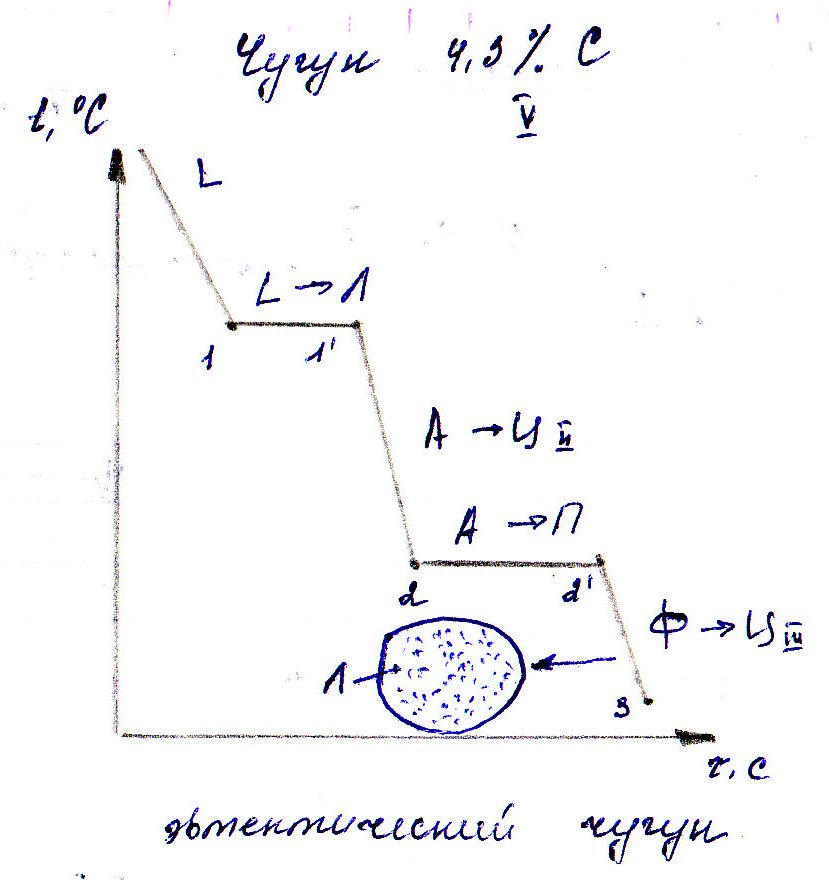 Чугун 4,3% С
V
t, °C
L
L → Л
1 1'
А → Ц II
А → П
2 2'
Ф → Ц III
Л
3
τ, с
эвтектический чугун